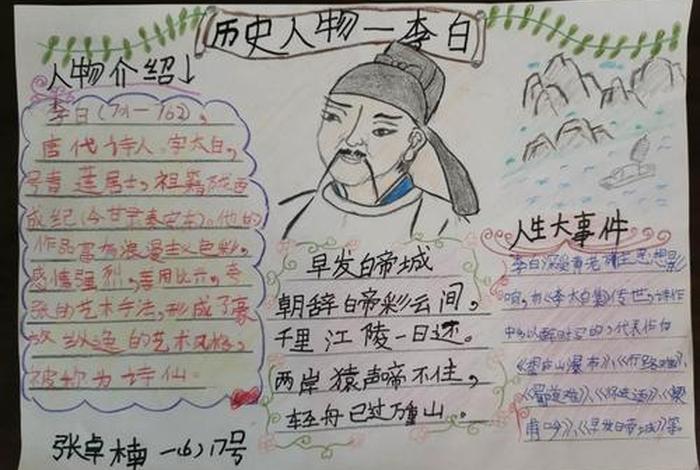 历史人物—李白
人物介绍↓
李白(701—762),
唐代诗人,字太白,
号青莲居士,祖籍陇西
成纪(今甘肃秦安东)。他的
作品富有浪漫主义色彩,
感情强烈,善用比六、夸
张的艺术手法,形成了豪
放纵逸的艺术风格,
被称为诗仙。
张卓楠 一(6)17号
早发白帝城
朝辞白帝彩云间,
千里江陵一日还。
两岸猿声啼不住,
轻舟已过万重山。
人生大事件
李白深受黄老列庄思想影
响,有《李太白集》传世,诗作
中多以醉时写的,代表作有
《望庐山瀑布》、《行路难》、
《蜀道难》、《将进酒》、《梁
甫吟》、《早发白帝城》等。